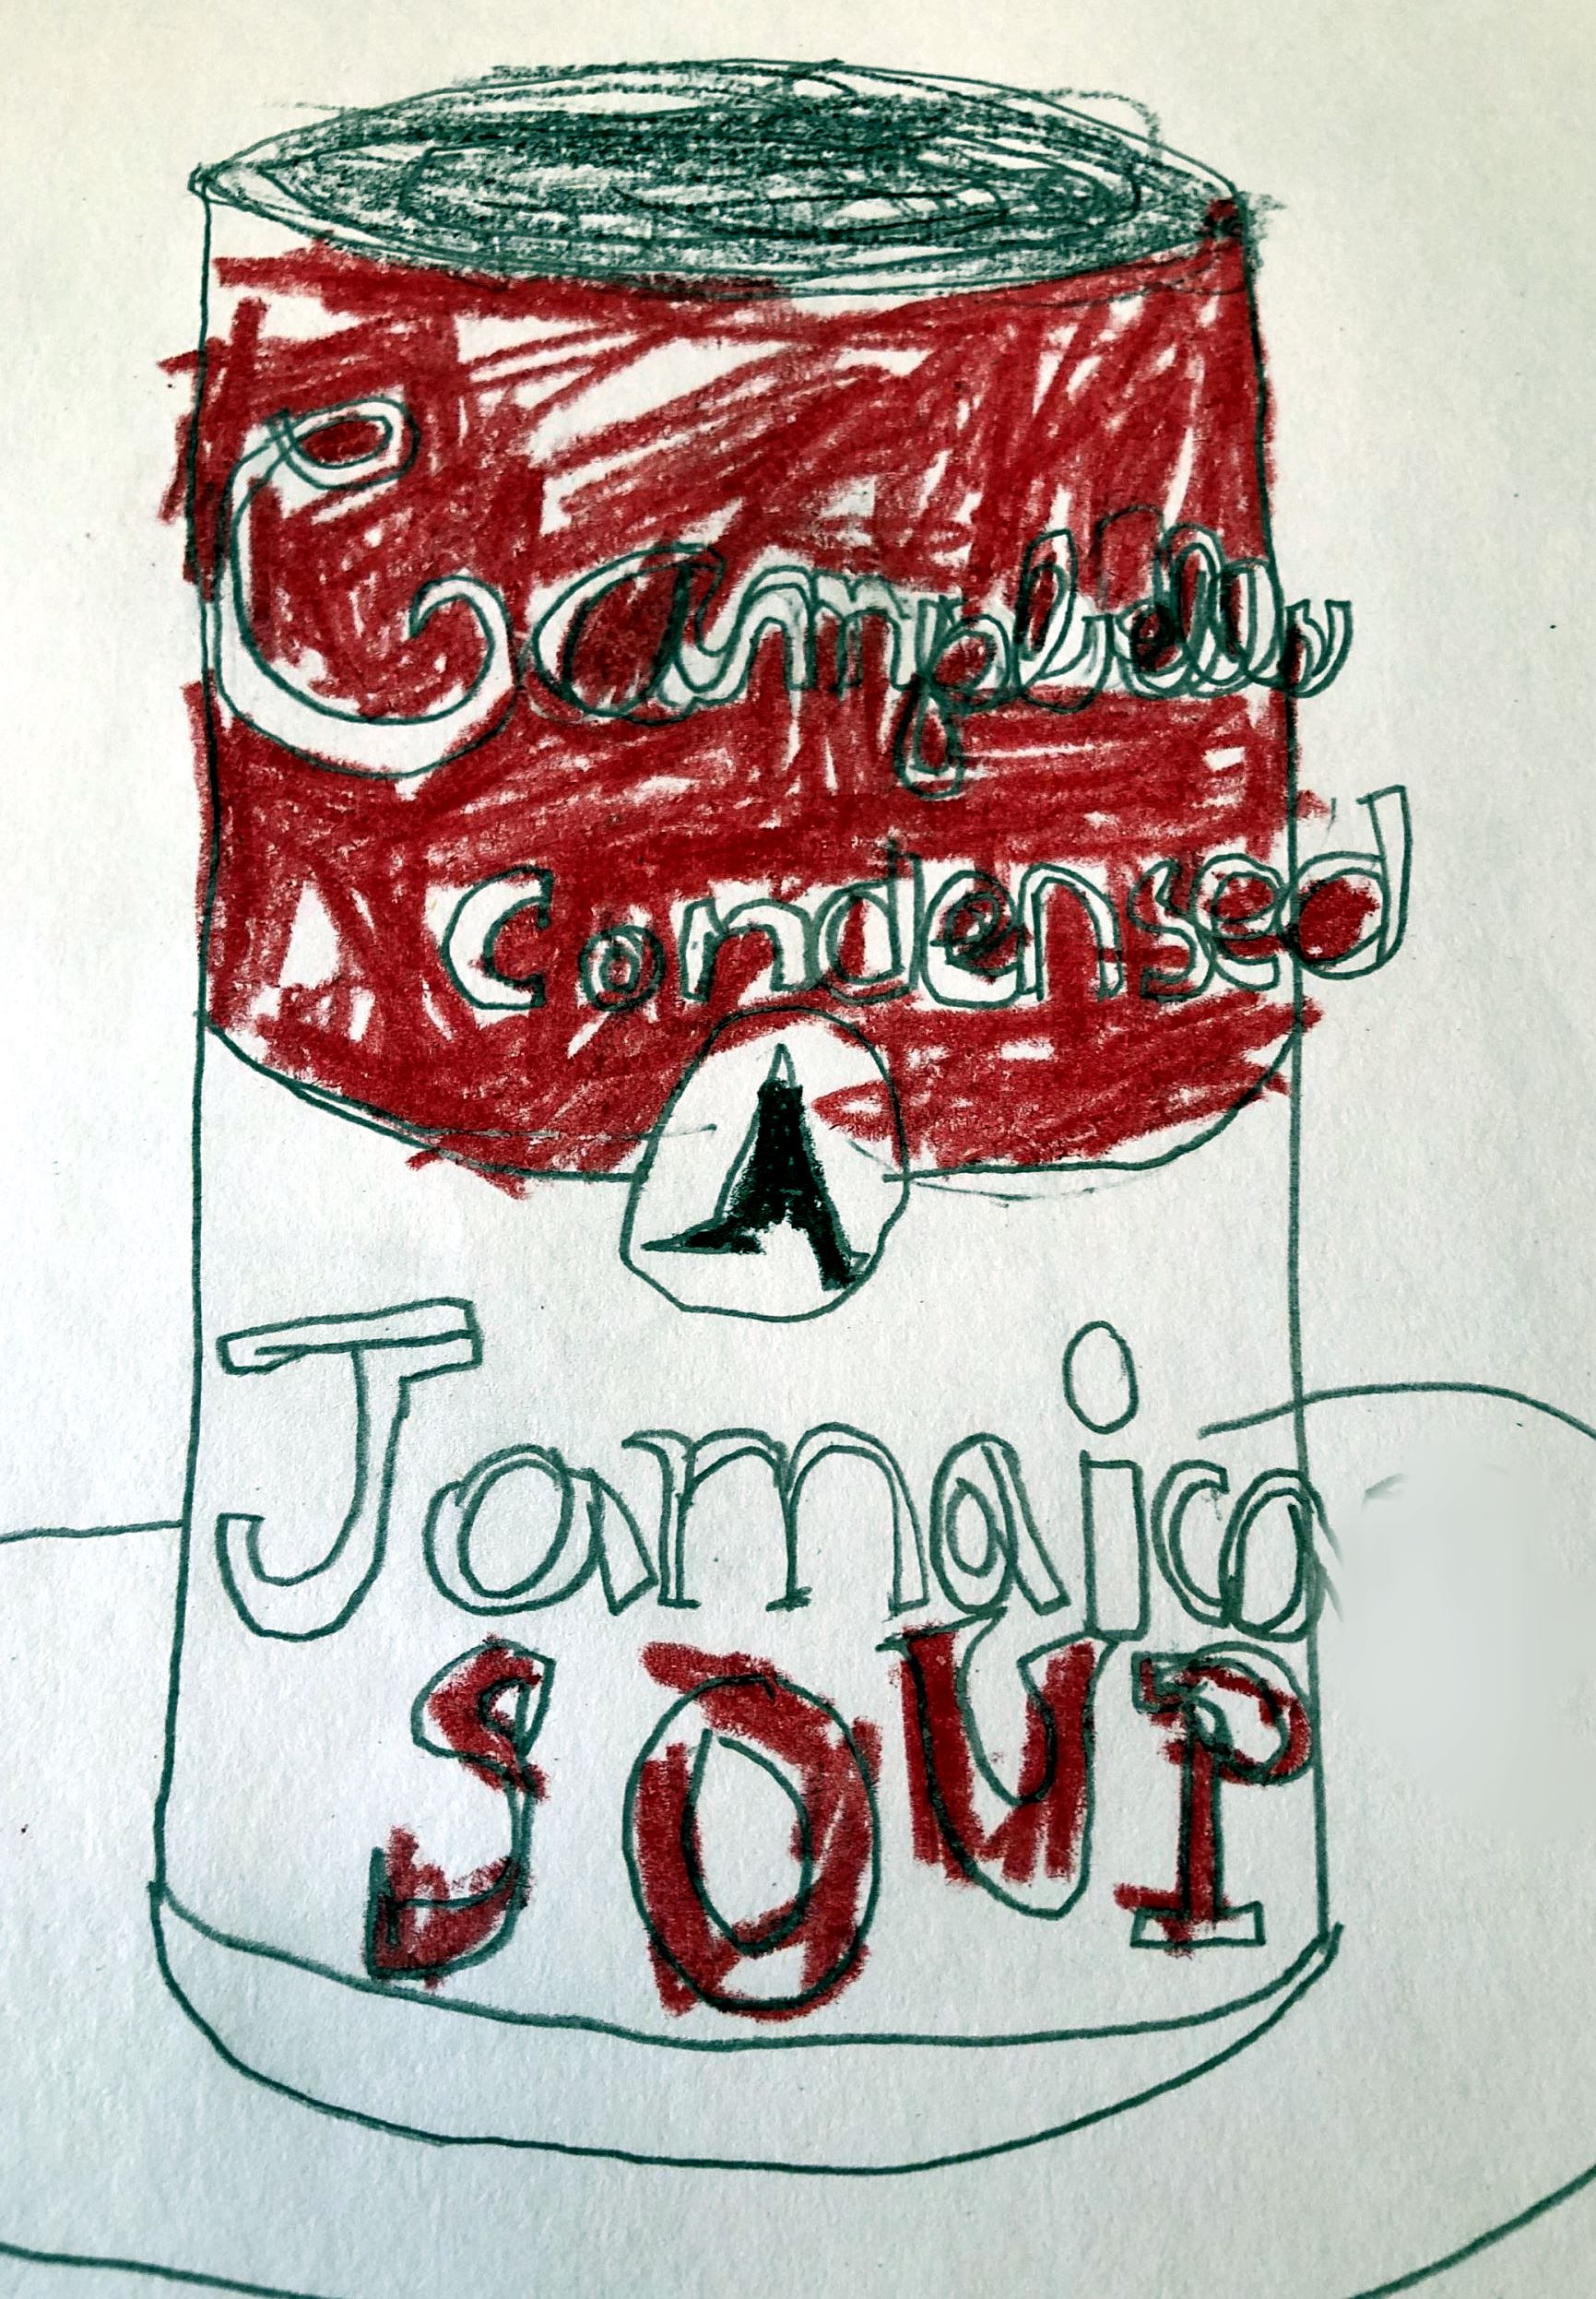 Campbells
Condensed
Jamaica
SOUP